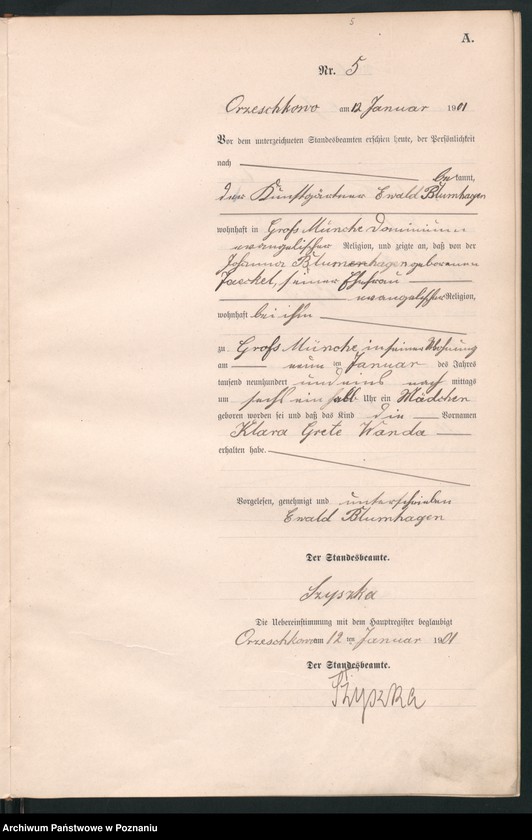 5
A.
Nr. 5
Orzeschkowo am 12 Januar 1901
Vor dem unterzeichneten Standesbeamten erschien heute, der Persönlichkeit
nach bekannt,
der Kunstgärtner Ewald Blumhagen
wohnhaft in Groß Münche Dominium
evangelischer Religion, und zeigte an, daß von der
Johanna Blumenhagen geborenen
Jaeckel, seiner Ehefrau
evangelischer Religion,
wohnhaft bei ihm
zu Groß Münche in seiner Wohnung
am neun ten Januar des Jahres
tausend neunhundert und eins nach mittags
um sechs ein halb Uhr ein Mädchen
geboren worden sei und daß das Kind die Vornamen
Klara Grete Wanda
erhalten habe.
Vorgelesen, genehmigt und unterschrieben
Ewald Blumhagen
Der Standesbeamte.
Szyszka
Die Uebereinstimmung mit dem Hauptregister beglaubigt
Orzeschkowo am 12 ten Januar 1901
Der Standesbeamte.
Szyszka
Archiwum Państwowe w Poznaniu